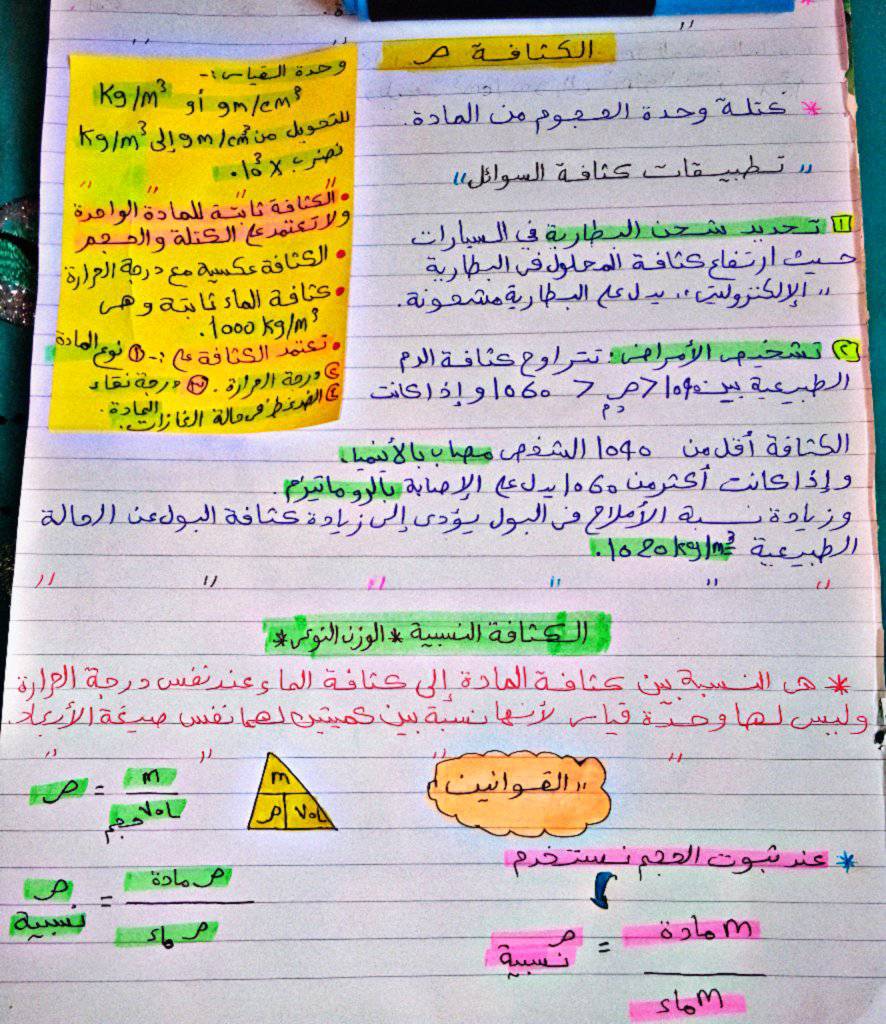 الكثافة ρ
* كتلة وحدة الحجوم من المادة.
" تطبيقات كثافة السوائل "
1 تحديد شحن البطارية في السيارات
حيث ارتفاع كثافة المحلول في البطارية
" الإلكتروليتى "، يدل على البطارية مشحونة.
2 تشخيص الأمراض: تتراوح كثافة الدم
الطبيعية بين 1040 < ρ دم < 1060 وإذا كانت
الكثافة أقل من 1040 الشخص مصاب بالأنيميا.
وإذا كانت أكثر من 1060 يدل على الإصابة بالروماتيزم.
وزيادة نسبة الأملاح في البول يؤدى إلى زيادة كثافة البول عن الحالة
الطبيعية 1020 kg/m³.
وحدة القياس :-
gm/cm³ أو Kg/m³
للتحويل من gm/cm³ إلى Kg/m³
نضرب × 10³.
• الكثافة ثابتة للمادة الواحدة
ولا تعتمد على الكتلة والحجم
• الكثافة عكسية مع درجة الحرارة
• كثافة الماء ثابتة وهى
1000 kg/m³.
• تعتمد الكثافة على :- 1 نوع المادة
2 درجة الحرارة. درجة نقاء
المادة.
الضغط في حالة الغازات.
الكثافة النسبية * الوزن النوعى *
* هى النسبة بين كثافة المادة إلى كثافة الماء عند نفس درجة الحرارة
وليس لها وحدة قياس لأنها نسبة بين كميتين لهما نفس صيغة الأبعاد.
" القوانين "
m
ρ Vol
ρ = m
Vol حجم
* عند ثبوت الحجم نستخدم
ρ نسبية = ρ مادة
ρ ماء
ρ نسبية = m مادة
m ماء